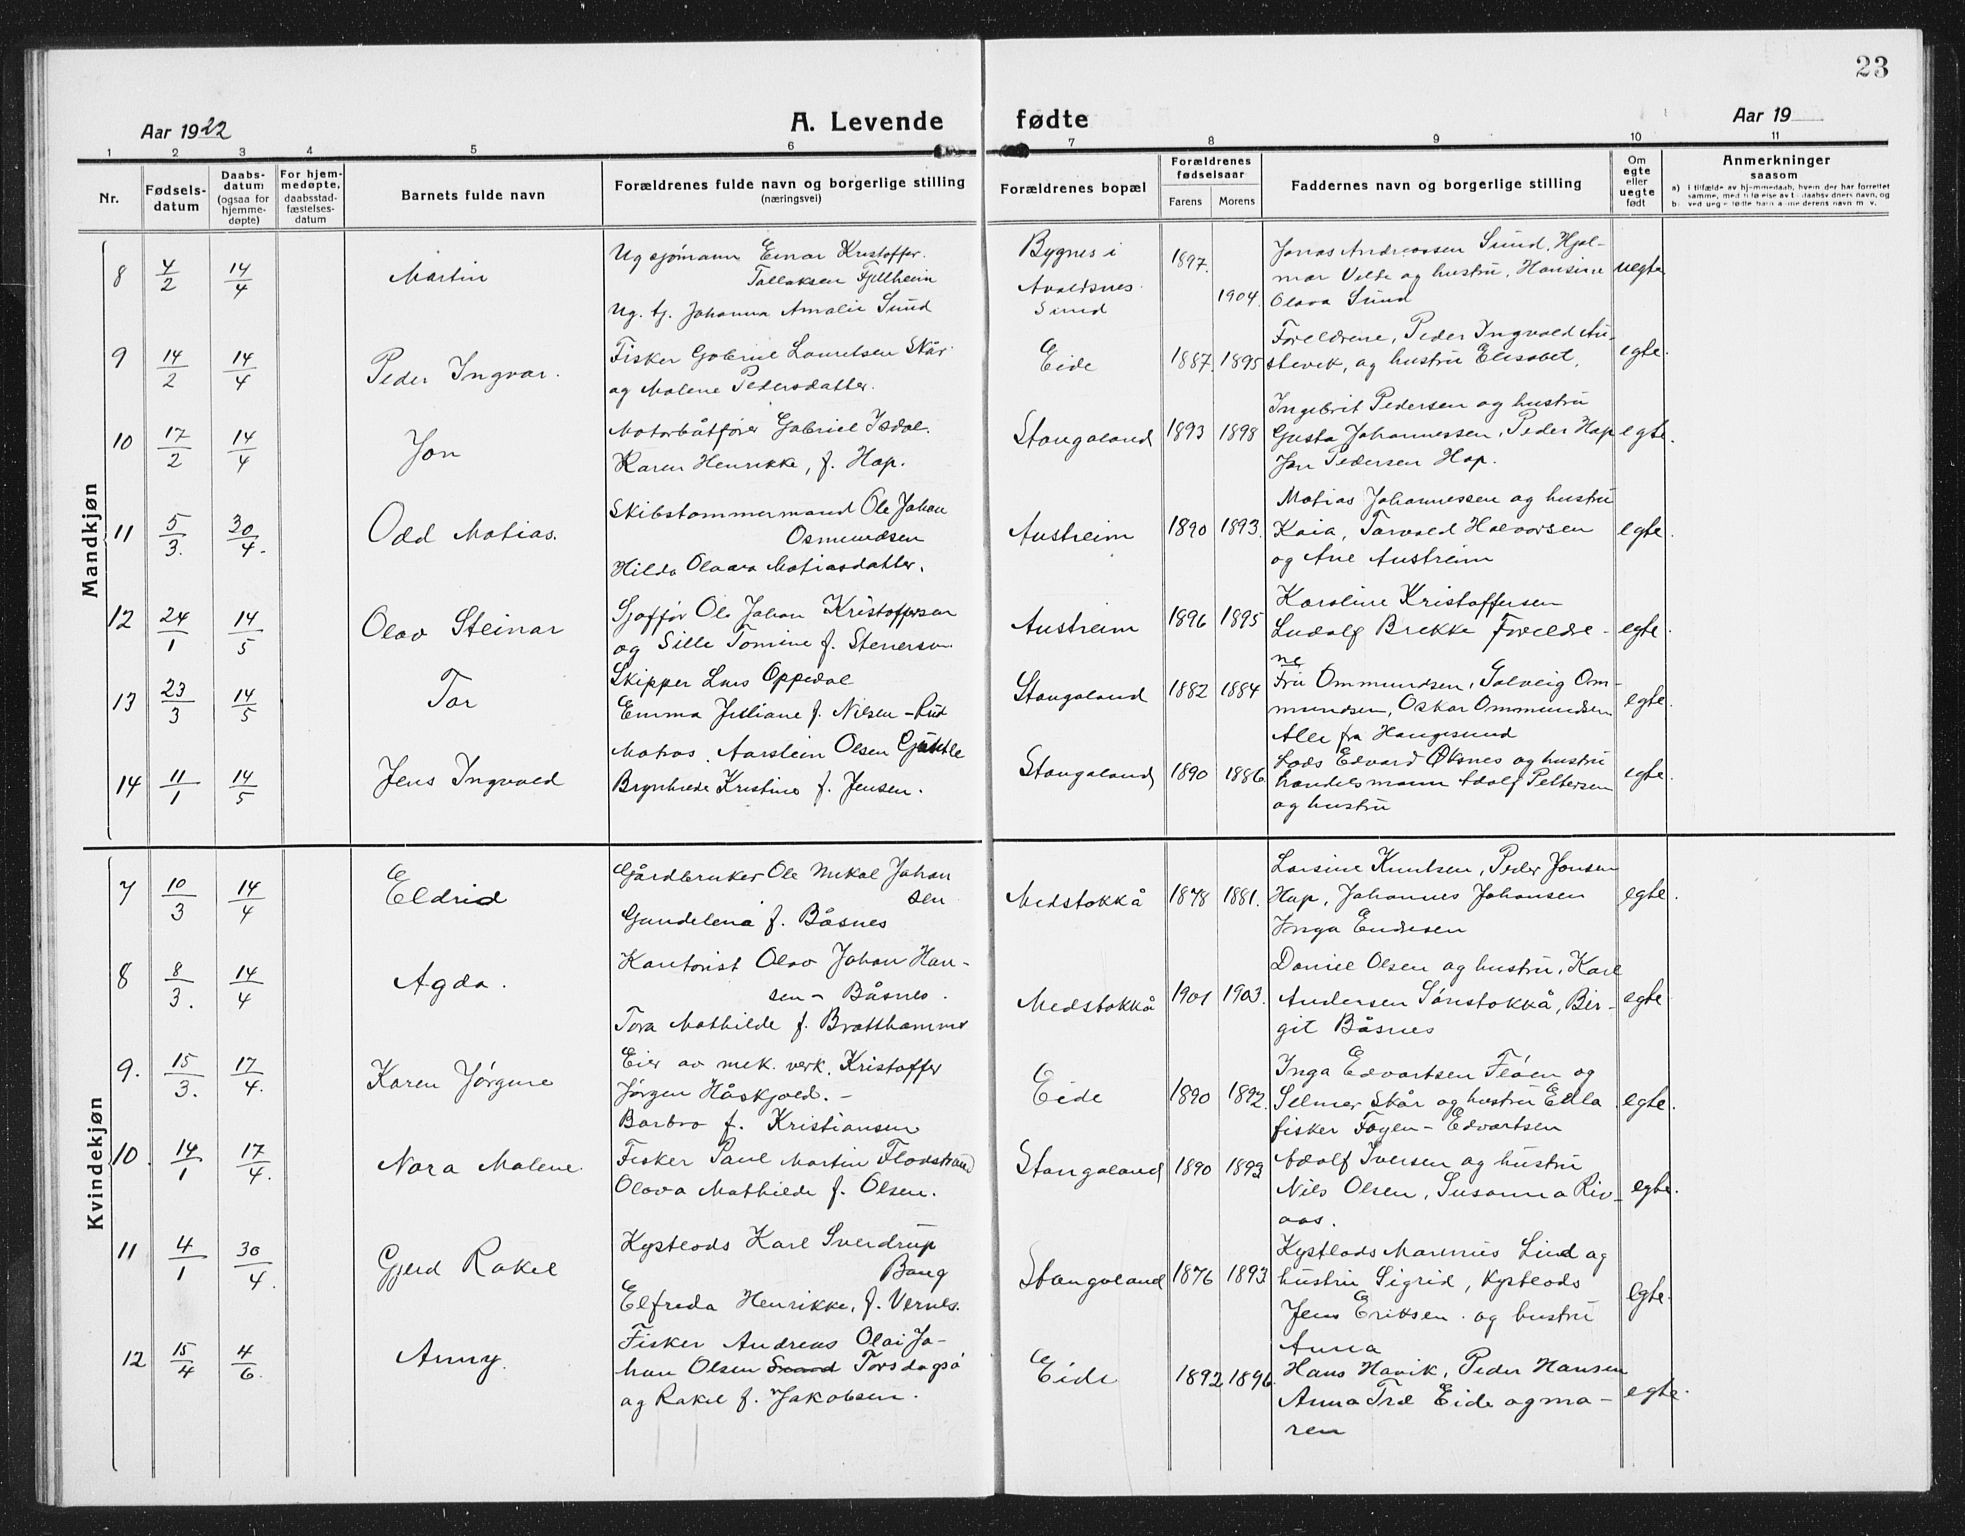 23
Aar 1922 A. Levende fødte Aar 19
1 2 3 4 5 6 7 8 9 10 11
Nr.
Fødselsdatum
Daabsdatum (ogsaa for hjemmedøpte)
For hjemmedøpte, daabsstadfæstelsesdatum
Barnets fulde navn
Forældrenes fulde navn og borgerlige stilling
(næringsvei)
Forældrenes bopæl
Forældrenes fødselsaar
Farens Morens
Faddernes navn og borgerlige stilling
Om egte eller uegte født
Anmerkninger
saasom
a) i tilfælde av hjemmedaab, hvem der har forrettet
samme, med tilføielse av daabsvidners navn, og
b) ved uegte fødte barn anmelderens navn m. v.
Mandkjøn
8 4/2 14/4 Martin
Ug sjømann Einar Kristoffer
Tallaksen Fjellheim
Ug. tj. Johanna Amalie Sund
Bygnes i
Avaldsnes
Sund
1897. 1904.
Jonas Andreassen Sund, Hjal-
mar Velde og hustru, Hansine
Olava Sund
uegte
9 14/2 14/4 Peder Ingvar.
Fisker Gabriel Lauritsen Skår
og Malene Pedersdatter.
Eide 1887. 1895
Foreldrene, Peder Ingvald Au-
stevik, og hustru Elisabet.
egte.
10 17/2 14/4 Jon
Motorbåtfører Gabriel Isdal.
Karen Henrikke, f. Hap.
Stangaland 1893 1898
Ingebrit Pedersen og hustru
Gusta Johannessen, Peder Hap
Jon Pedersen Hap.
egte.
11 5/3. 30/4. Odd Matias.
Skibstømmermand Ole Johan
Osmundsen
Hilda Olaara Matiasdatter.
Austreim 1890 1893.
Matias Johannessen og hustru
Kaia, Tarvald Halvorsen
og Ane Austreim
egte.
12 24/1 14/5 Olav Steinar
Sjåffør Ole Johan Kristoffersen
og Sille Tomine f. Stenersen
Austreim 1896 1895
Karoline Kristoffersen
Ludolf Brekke Foreldre-
ne
egte
13 23/3 14/5 Tor
Skipper Lars Oppedal
Emma Juliane f. Nilsen-Rud
Stangaland 1882 1884
Fru Ommundsen, Solveig Om-
mundsen, Oskar Ommundsen
Alle fra Haugesund
egte.
14 11/1 14/5 Jens Ingvald
Matros. Aarstein Olsen
Brynhilde Kristine f. Jensen.
Stangaland 1890 1886.
Lods Edvard Øksnes og hustru
handelsmann Adolf Pettersen
og hustru
egte
Kvindekjøn
7 10/3 14/4 Eldrid
Gårdbruker Ole Mikal Johan
sen
Gundelena f. Båsnes
Medstokkå 1878 1881.
Larsine Knutsen, Peder Jonsen
Hap, Johannes Johansen
Inga Endresen
egte.
8 8/3. 14/4 Agda.
Kantorist Olav Johan Han-
sen - Båsnes.
Tora Mathilde f. Bratthammer
Medstokkå 1901 1903.
Daniel Olsen og hustru, Karl
Andersen Sørstokkå, Bir-
git Båsnes
egte.
9. 15/3. 17/4. Karen Jørgine
Eier av mek. verk. Kristoffer
Jørgen Håskjold. -
Barbro f. Kristiansen
Eide 1890 1892.
Inga Edvartsen Fløen og
Selmer Skår og hustru Ella
fisker Fagen - Edvartsen
egte.
10. 14/1 17/4. Nora Malene.
Fisker Paul Martin Flodstrand
Olava Mathilde f. Olsen.
Stangaland 1890 1893
Adolf Iversen og hustru
Nils Olsen, Susanna Riv-
aas.
egte.
11 4/1 30/4. Gjerd Rakel
Kystlods Karl Sverdrup
Bang
Elfreda Henrikke, f. Vernes.
Stangaland 1876 1893
Kystlods Marinus Lind og
hustru Sigrid, Kystlods
Jens Eriksen og hustru
Anna
egte.
12 15/4 4/6 Anny.
Fisker Andreas Olai Jo-
han Olsen Torsdagså
og Rakel f. Jakobsen.
Eide 1892 1896.
Hans Havik, Peder Hansen
Anna Træ Eide og Ma-
ren
egte.